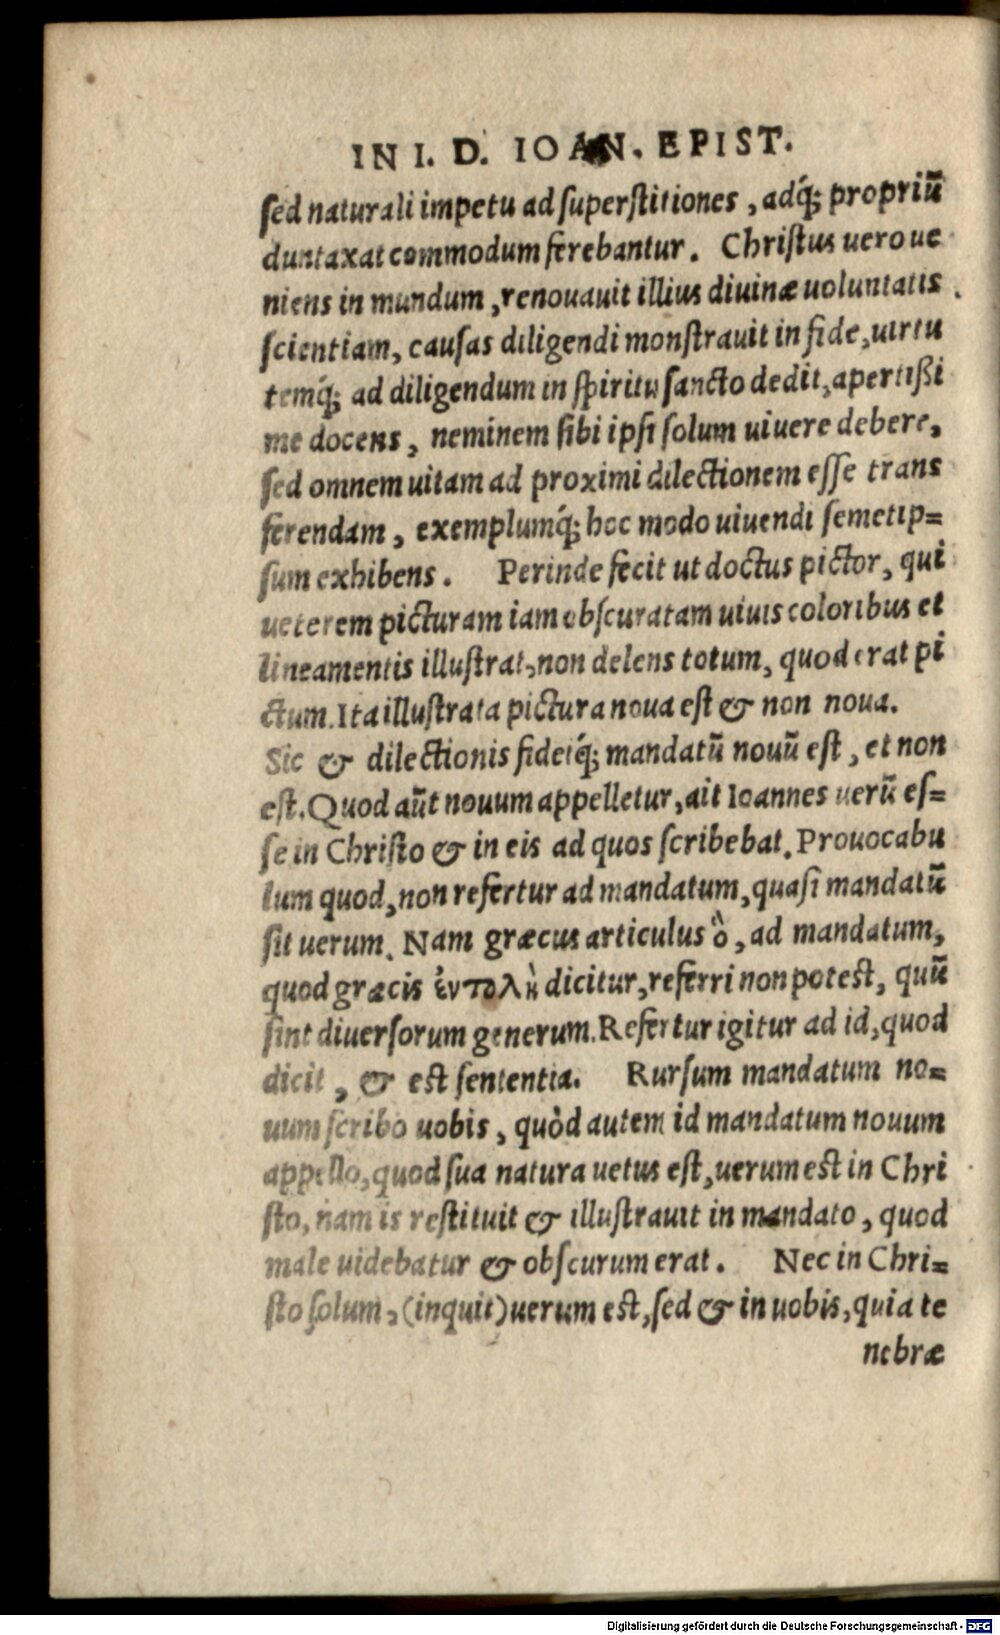 IN I. D. IOAN. EPIST.
sed naturali impetu ad superstitiones, adq́; propriũ
duntaxat commodum ferebantur. Christus uero ue
niens in mundum, renouauit illius diuinæ uoluntatis
scientiam, causas diligendi monstrauit in fide, uirtu
temq́; ad diligendum in spiritu sancto dedit, apertißi
me docens, neminem sibi ipsi solum uiuere debere,
sed omnem uitam ad proximi dilectionem esse trans
ferendam, exemplumq́; hoc modo uiuendi semetip=
sum exhibens. Perinde fecit ut doctus pictor, qui
ueterem picturam iam obscuratam uiuis coloribus et
lineamentis illustrat, non delens totum, quod erat pi
ctum. Ita illustrata pictura noua est & non noua.
Sic & dilectionis fideiq́; mandatũ nouũ est, et non
est. Quod aũt nouum appelletur, ait Ioannes uerũ es=
se in Christo & in eis ad quos scribebat. Prouocabu
lum quod, non refertur ad mandatum, quasi mandatũ
sit uerum. Nam græcus articulus ὃ, ad mandatum,
quod græcis ἐντολὴ dicitur, referri non potest, quũ
sint diuersorum generum. Refertur igitur ad id, quod
dicit, & est sententia. Rursum mandatum no=
uum scribo uobis, quòd autem id mandatum nouum
appello, quod sua natura uetus est, uerum est in Chri
sto, nam is restituit & illustrauit in mandato, quod
male uidebatur & obscurum erat. Nec in Chri=
sto solum, (inquit) uerum est, sed & in uobis, quia te
nebræ
Digitalisierung gefördert durch die Deutsche Forschungsgemeinschaft - DFG